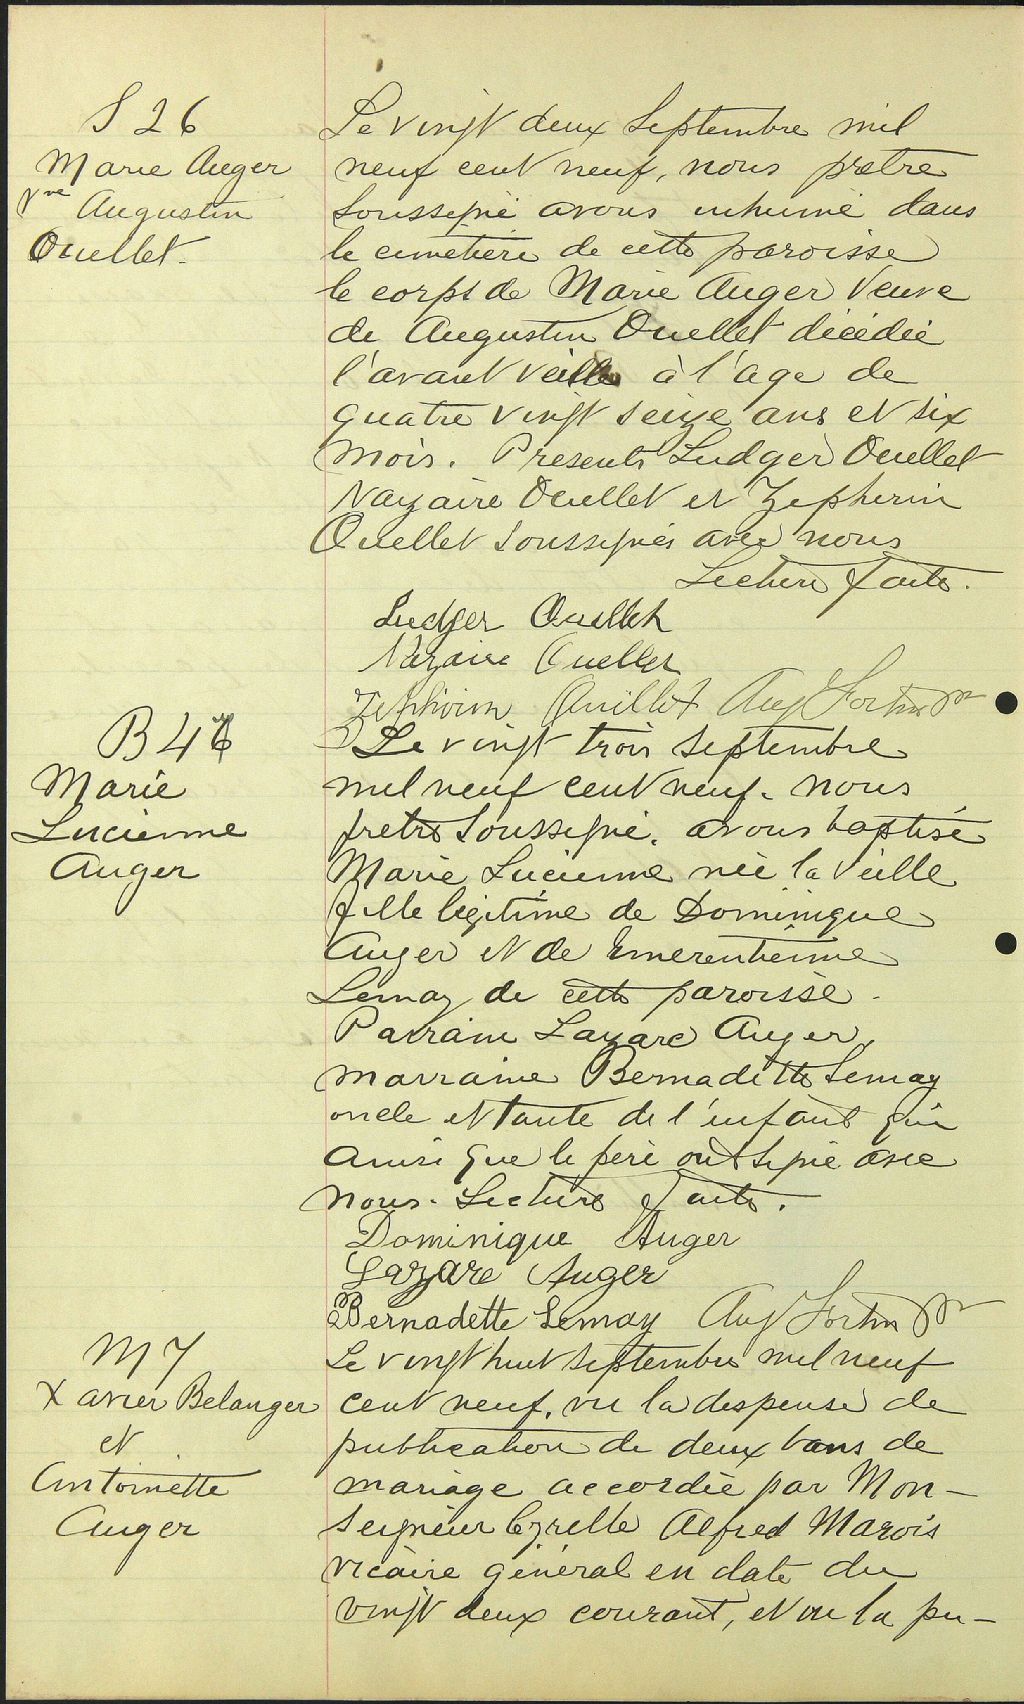 S 26
Marie Auger
Vve Augustin
Ouellet.
Le vingt deux Septembre mil
neuf cent neuf, nous prêtre
soussigné avons inhumé dans
le cimetière de cette paroisse
le corps de Marie Auger Veuve
de Augustin Ouellet décédée
l'avant veille à l'age de
quatre vingt seize ans et six
mois. Presents Ludger Ouellet
Nazaire Ouellet et Zepherin
Ouellet soussignés avec nous
Lecture faite.
Ludger Ouellet
Nazaire Ouellet
Zephirin Ouillet Aug Fortin ptr
B 47
Marie
Lucienne
Auger
Le vingt trois septembre
mil neuf cent neuf. nous
pretre soussigné. avons baptisé
Marie Lucienne née la veille
fille légitime de Dominique
Auger et de Emerentienne
Lemay de cette paroisse.
Parrain Lazare Auger,
marraine Bernadette Lemay
oncle et tante de l'enfant qui
ainsi que le père ont signé avec
nous. Lecture faite.
Dominique Auger
Lazare Auger
Bernadette Lemay Aug Fortin ptr
M 7
Xavier Belanger
et
Antoinette
Auger
Le vingt huit septembre mil neuf
cent neuf. vu la dispense de
publication de deux bans de
mariage accordée par Mon-
seigneur Cyrille Alfred Marois
vicaire général en date du
vingt deux courant, et vu la pu-